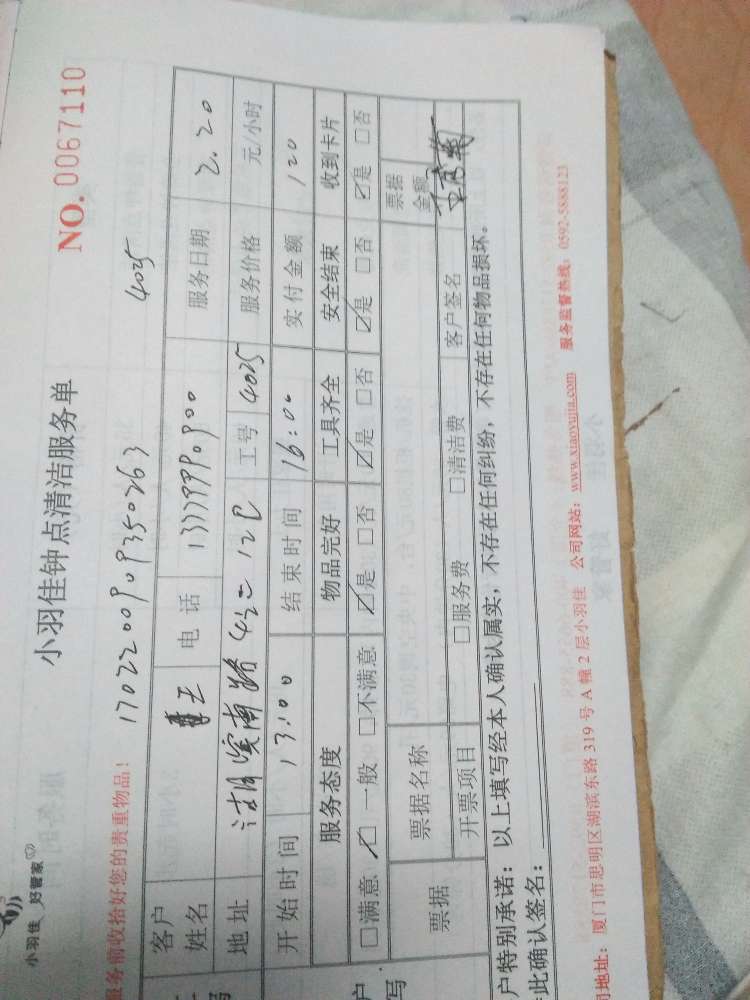 小羽佳 好管家
小羽佳钟点清洁服务单
NO. 0067110
服务前收拾好您的贵重物品!
4025
客户姓名 王 电话 服务日期 2.20
地址 工号 4025 服务价格 元/小时
开始时间 13:00 结束时间 16:00 实付金额 120
服务态度 物品完好 工具齐全 安全结束 收到卡片
□满意 ☑一般 □不满意 ☑是 □否 ☑是 □否 ☑是 □否 ☑是 □否
票据 票据名称 票据金额
开票项目 □服务费 □清洁费 客户签名
户特别承诺:以上填写经本人确认属实,不存在任何纠纷,不存在任何物品损坏。
此确认签名:
司地址:厦门市思明区湖滨东路 319 号 A 幢 2 层小羽佳 公司网站:www.xiaoyujia.com 服务监督热线:0592-5888123